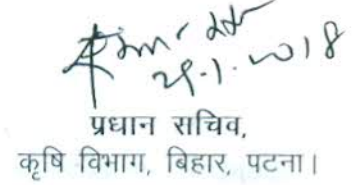 29.1.2018
प्रधान सचिव,
कृषि विभाग, बिहार, पटना।